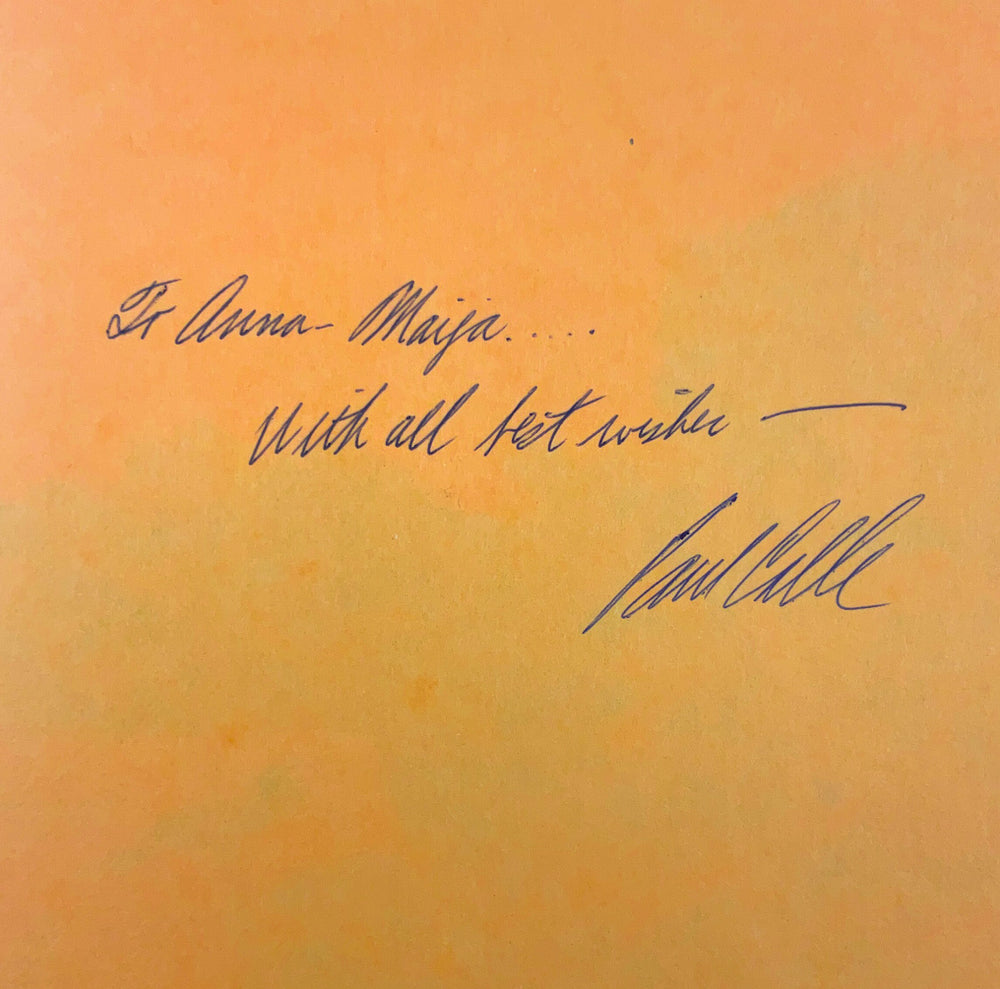 To Anna-Maija.....
With all best wishes —
Paul Calle